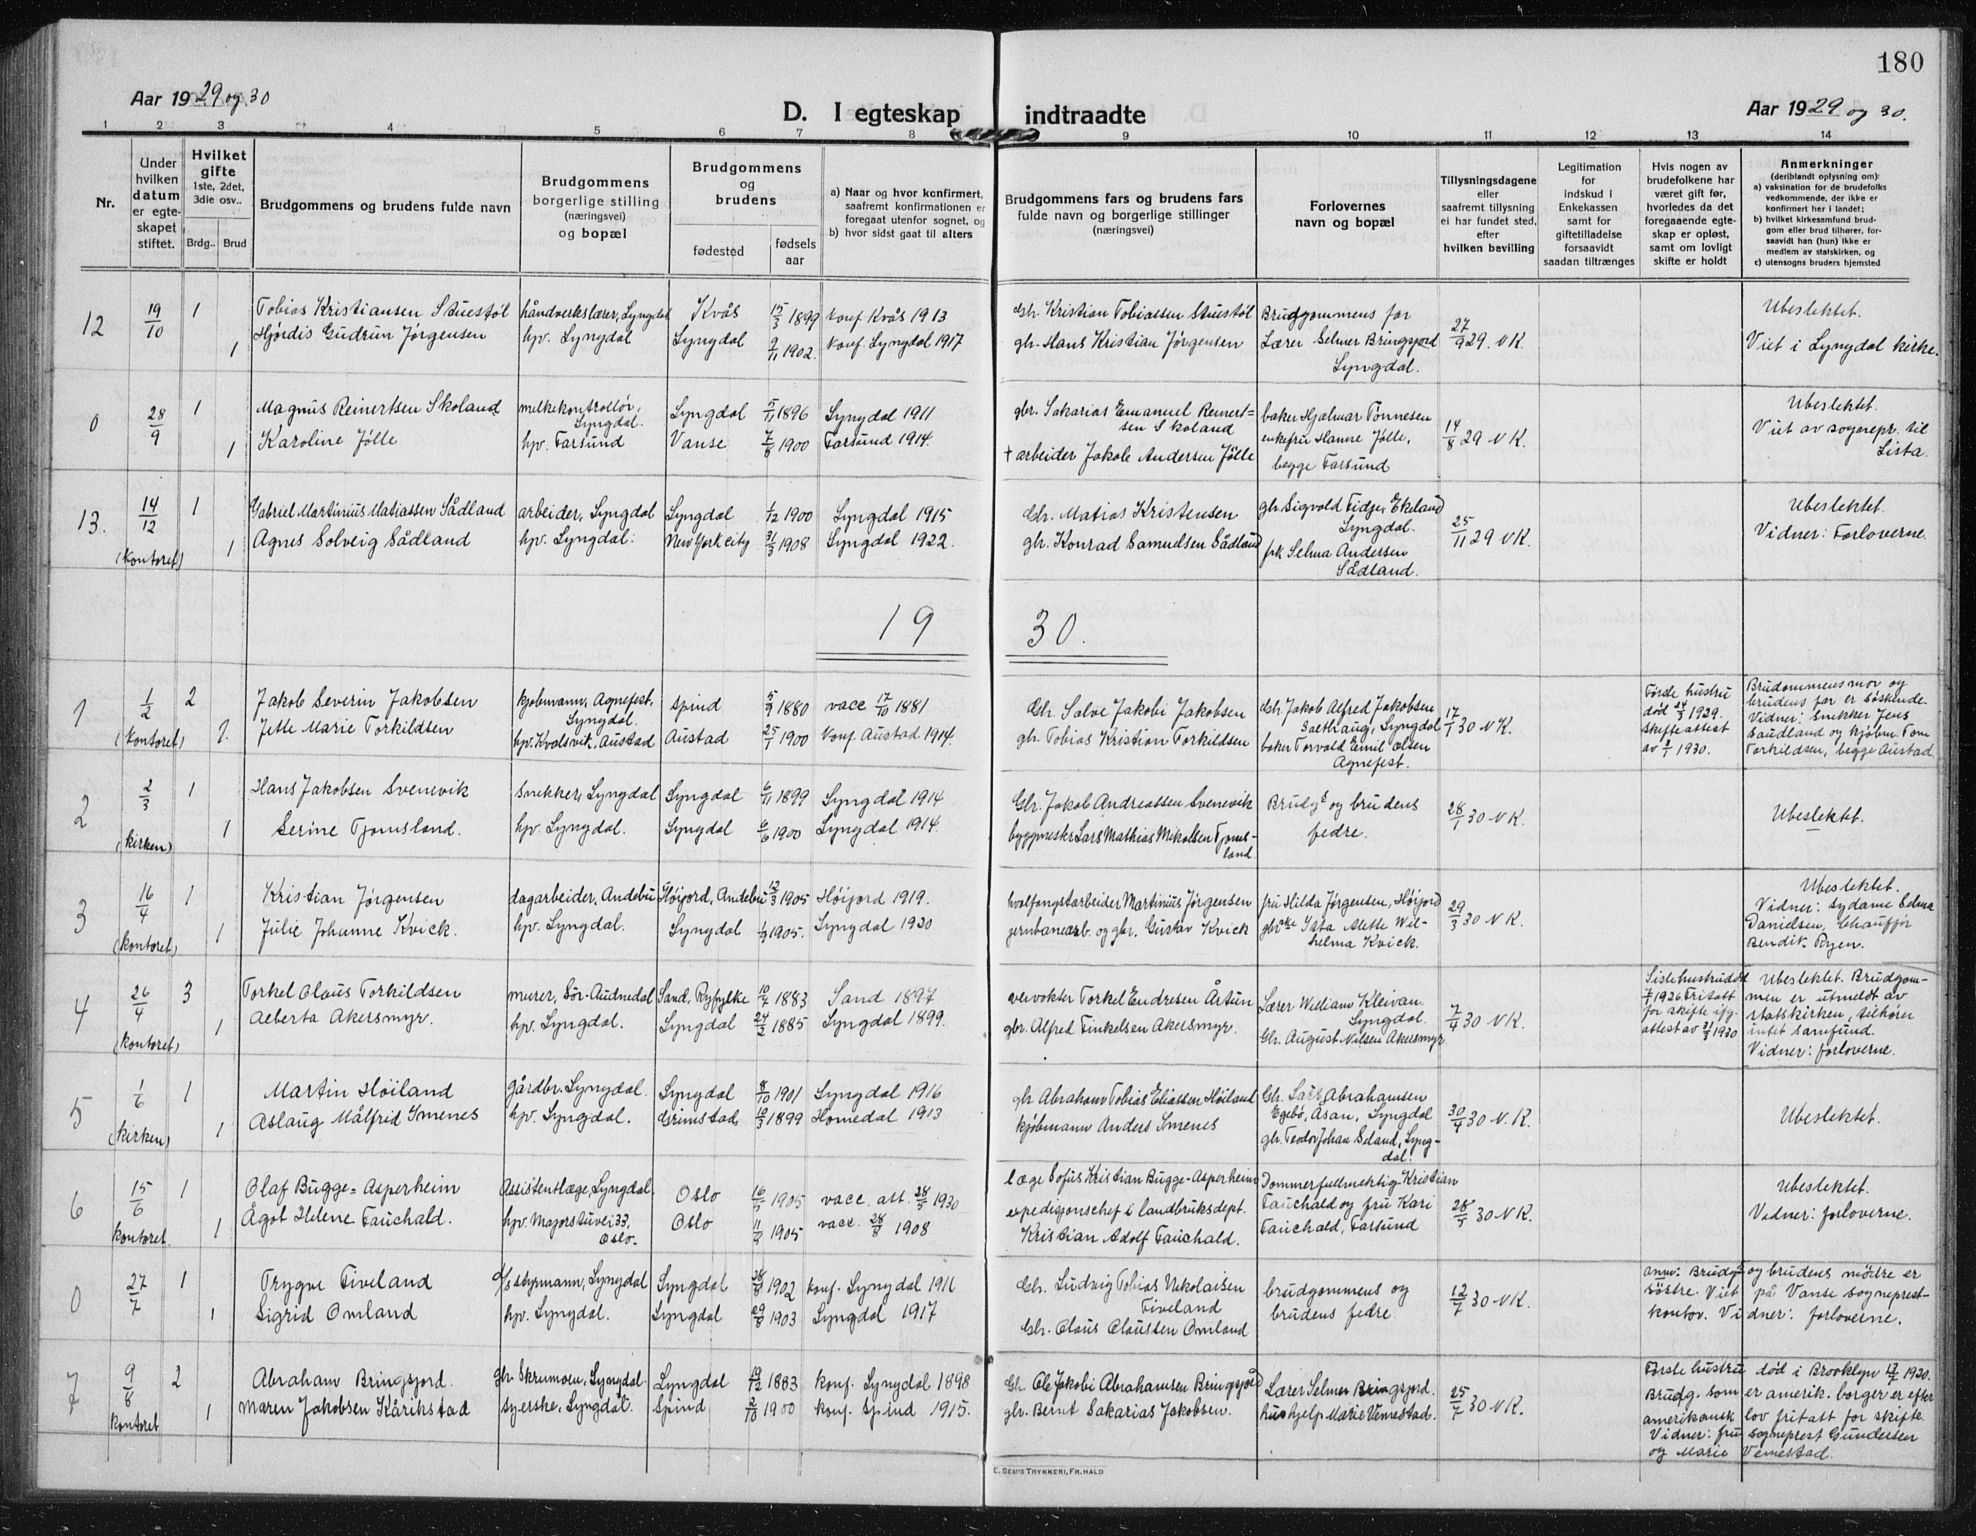 180
Aar 1929 og 30
D. I egteskap indtraadte
Aar 1929 og 30.
1 2 3 4 5 6 7 8 9 10 11 12 13 14
Nr.
Under hvilken datum er egteskapet stiftet.
Hvilket gifte 1ste, 2det, 3die osv..
Brdg.. Brud
Brudgommens og brudens fulde navn
Brudgommens borgerlige stilling (næringsvei) og bopæl
Brudgommens og brudens
fødested
fødsels aar
a) Naar og hvor konfirmert, saafremt konfirmationen er foregaat utenfor sognet, og
b) hvor sidst gaat til alters
Brudgommens fars og brudens fars fulde navn og borgerlige stillinger (næringsvei)
Forlovernes navn og bopæl
Tillysningsdagene eller saafremt tillysning ei har fundet sted, efter hvilken bevilling
Legitimation for indskud i Enkekassen samt for giftetilladelse forsaavidt saadan tiltrænges
Hvis nogen av brudefolkene har været gift før, hvorledes da det foregaaende egteskap er opløst, samt om lovligt skifte er holdt
Anmerkninger (deriblandt oplysning om):
a) vaksination for de brudefolks vedkommende, der ikke er konfirmert her i landet;
b) hvilket kirkesamfund brudgom eller brud tilhører, forsaavidt han (hun) ikke er medlem av statskirken, og
c) utensogns bruders hjemsted
12 19/10 1 Tobias Kristiansen Stuestøl håndverkslærer, Lyngdal Kvås 15/3 1899 konf. Kvås 1913 Gbr. Kristian Tobiassen Stuestøl Brudgommens far 27/9 29. NK. Ubeslektet.
1 Hjørdis Gudrun Jørgensen hpv. Lyngdal Lyngdal 9/11 1902. konf. Lyngdal 1917 gbr. Hans Kristian Jørgensen Lærer Selmer Bringsjord Lyngdal. Viet i Lyngdal kirke.
0 28/9 1 Magnus Reinertsen Skoland melkekontrollør, Lyngdal. Lyngdal 5/11 1896 Lyngdal 1911 gbr. Sakarias Emanuel Reinertsen Skoland baker Hjalmar Tønnesen 14/8 29 NK. Ubeslektet.
1 Karoline Jølle hpv. Farsund Vanse 7/8 1900 Farsund 1914. + arbeider Jakob Andersen Jølle enkefru Hanne Jølle, begge Farsund Viet av sognepr. til Lista.
13. 14/12 (kontoret) 1 Gabriel Martinius Matiassen Sådland arbeider, Lyngdal Lyngdal 1/12 1900 Lyngdal 1915 Gbr. Matias Kristensen gbr Sigvold Fidje, Ekeland Lyngdal. 25/11 29 NK. Ubeslektet.
1 Agnes Solveig Sådland hpv. Lyngdal. New York city 31/3 1908 Lyngdal 1922. gbr. Konrad Samuelsen Sådland frk Selma Andersen Sådland. Vidner: Forloverne.
1930.
1 1/2 (kontoret) 2 Jakob Severin Jakobsen kjøbmann, Agnefest, Lyngdal. Spind 5/9 1880 vacc 17/10 1881 Gbr. Salve Jakobi Jakobsen Gbr. Jakob Alfred Jakobsen Sæthaug, Lyngdal 17/1 30 NK. Første hustru død 24/3 1929. Skifteattest av 2/1 1930. Brudommens mor og brudens far er søskende.
1. Jette Marie Torkildsen hpv. Kvalsvik, Austad Austad 25/1 1900 konf Austad 1914. gbr. Tobias Kristian Torkildsen baker Torvald Emil Olsen Agnefest. Vidner: Snekker Jens Saudland og kjøbm. Tom Torkildsen, begge Austad
2 2/3 (kirken) 1 Hans Jakobsen Svenevik snekker, Lyngdal Lyngdal 6/11 1899 Lyngdal 1914 Gbr. Jakob Andreassen Svenevik Brudgs og brudens fedre. 28/1 30 NK. Ubeslektet.
1 Serine Tjomsland. hpv. Lyngdal. Lyngdal 6/6 1900 Lyngdal 1914. byggmester Lars Mathias Mikalsen Tjomsland
3 16/4 (kontoret) 1 Kristian Jørgensen dagarbeider, Andebu Høijord, Andebu 12/3 1905 Høijord 1919. hvalfangstarbeider Martinius Jørgensen fru Hilda Jørgensen, Høijord 29/3 30 NK. Ubeslektet.
1 Julie Johanne Kvick. hpv. Lyngdal. Lyngdal 1/9 1905. Lyngdal 1920 jernbanearb. og gbr. Gustav Kvick Alette Wilhelma Kvick. Vidner: Sydame Selma Danielsen, Chauffør Bendik Ryen.
4 26/4 (kontoret) 3 Torkel Olaus Torkildsen murer, Sør-Audnedal Sand, Ryfylke 10/7 1883 Sand 1897 Torkel Endresen Årtun Lærer William Kleivan Lyngdal. 7/4 30 NK. Siste hustru død 1926 Fritatt for skifte ifg. attest av 1930 Ubeslektet. Brudgommen er utmeldt av statskirken, tilhører intet samfund.
1 Alberta Akersmyr. hpv. Lyngdal. Lyngdal 24/2 1885 Lyngdal 1899. gbr. Alfred Finkelsen Akersmyr. Gbr. August Nilsen Akersmyr Vidner: forloverne.
5 1/6 (kirken) 1 Martin Høiland gårdbr. Lyngdal. Lyngdal 8/10 1901 Lyngdal 1916 gbr Abraham Tobias Eliassen Høiland Gbr. Lars Abrahamsen Egebø, Åsan, Lyngdal 30/4 30 N.K. Ubeslektet.
1 Aslaug Målfrid Imenes hpv. Lyngdal. Grimstad 10/3 1899 Homedal 1913 kjøbmann Anders Imenes gbr. Teodor Johan Seland, Lyngdal.
6 15/6 kontoret. 1 Olaf Bugge-Asperheim Assistentlæge, Lyngdal. Oslo 1905 vacc. att. 28/5 1930 læge Sofus Kristian Bugge-Asperheim Dommerfullmektig Kristian Fauchald og fru Kari Fauchald, Farsund 28/5 30 NK. Ubeslektet.
1 Ågot Helene Fauchald. hpv. Majorstuvei 33, Oslo. Oslo 1905 vacc. 28/8 1908 expedisjonschef i landbruksdept. Kristian Adolf Fauchald. Vidner: forloverne.
0 27/7 1 Trygve Fiveland styrmann, Lyngdal Lyngdal 28/8 1902 konf. Lyngdal 1916 Gbr. Ludvig Tobias Nikolaisen Fiveland brudgommens og brudens fedre. 12/7 30 NK. anm: Brudgs og brudens mødre er søstre. Viet på Vanse sogneprestkontor. Vidner: forloverne.
1 Sigrid Omland hpv. Lyngdal. Lyngdal 29/8 1903 Lyngdal 1917 Gbr. Olaus Olaussen Omland
7 9/8 kontoret 2 Abraham Bringsjord. gbr. Skrumoen, Lyngdal. Lyngdal 19/12 1883 konf. Lyngdal 1898 Gbr. Ole Jakobi Abrahamsen Bringsjord Lærer Selmer Bringsjord. 25/7 30 NK. Første hustru død i Brooklyn 1920. Brudg. som er amerik. borger er efter amerikansk lov fritatt for skifte.
1 Maren Jakobsen Kårikstad syerske, Lyngdal. Spind 2/10 1900 konf. Spind 1915. gbr. Bernt Sakarias Jakobsen. hushjelp Marie Vemestad. Vidner: fru sogneprest Gundersen og Marie Vemestad.
E. SEM'S TRYKKERI, FR.HALD